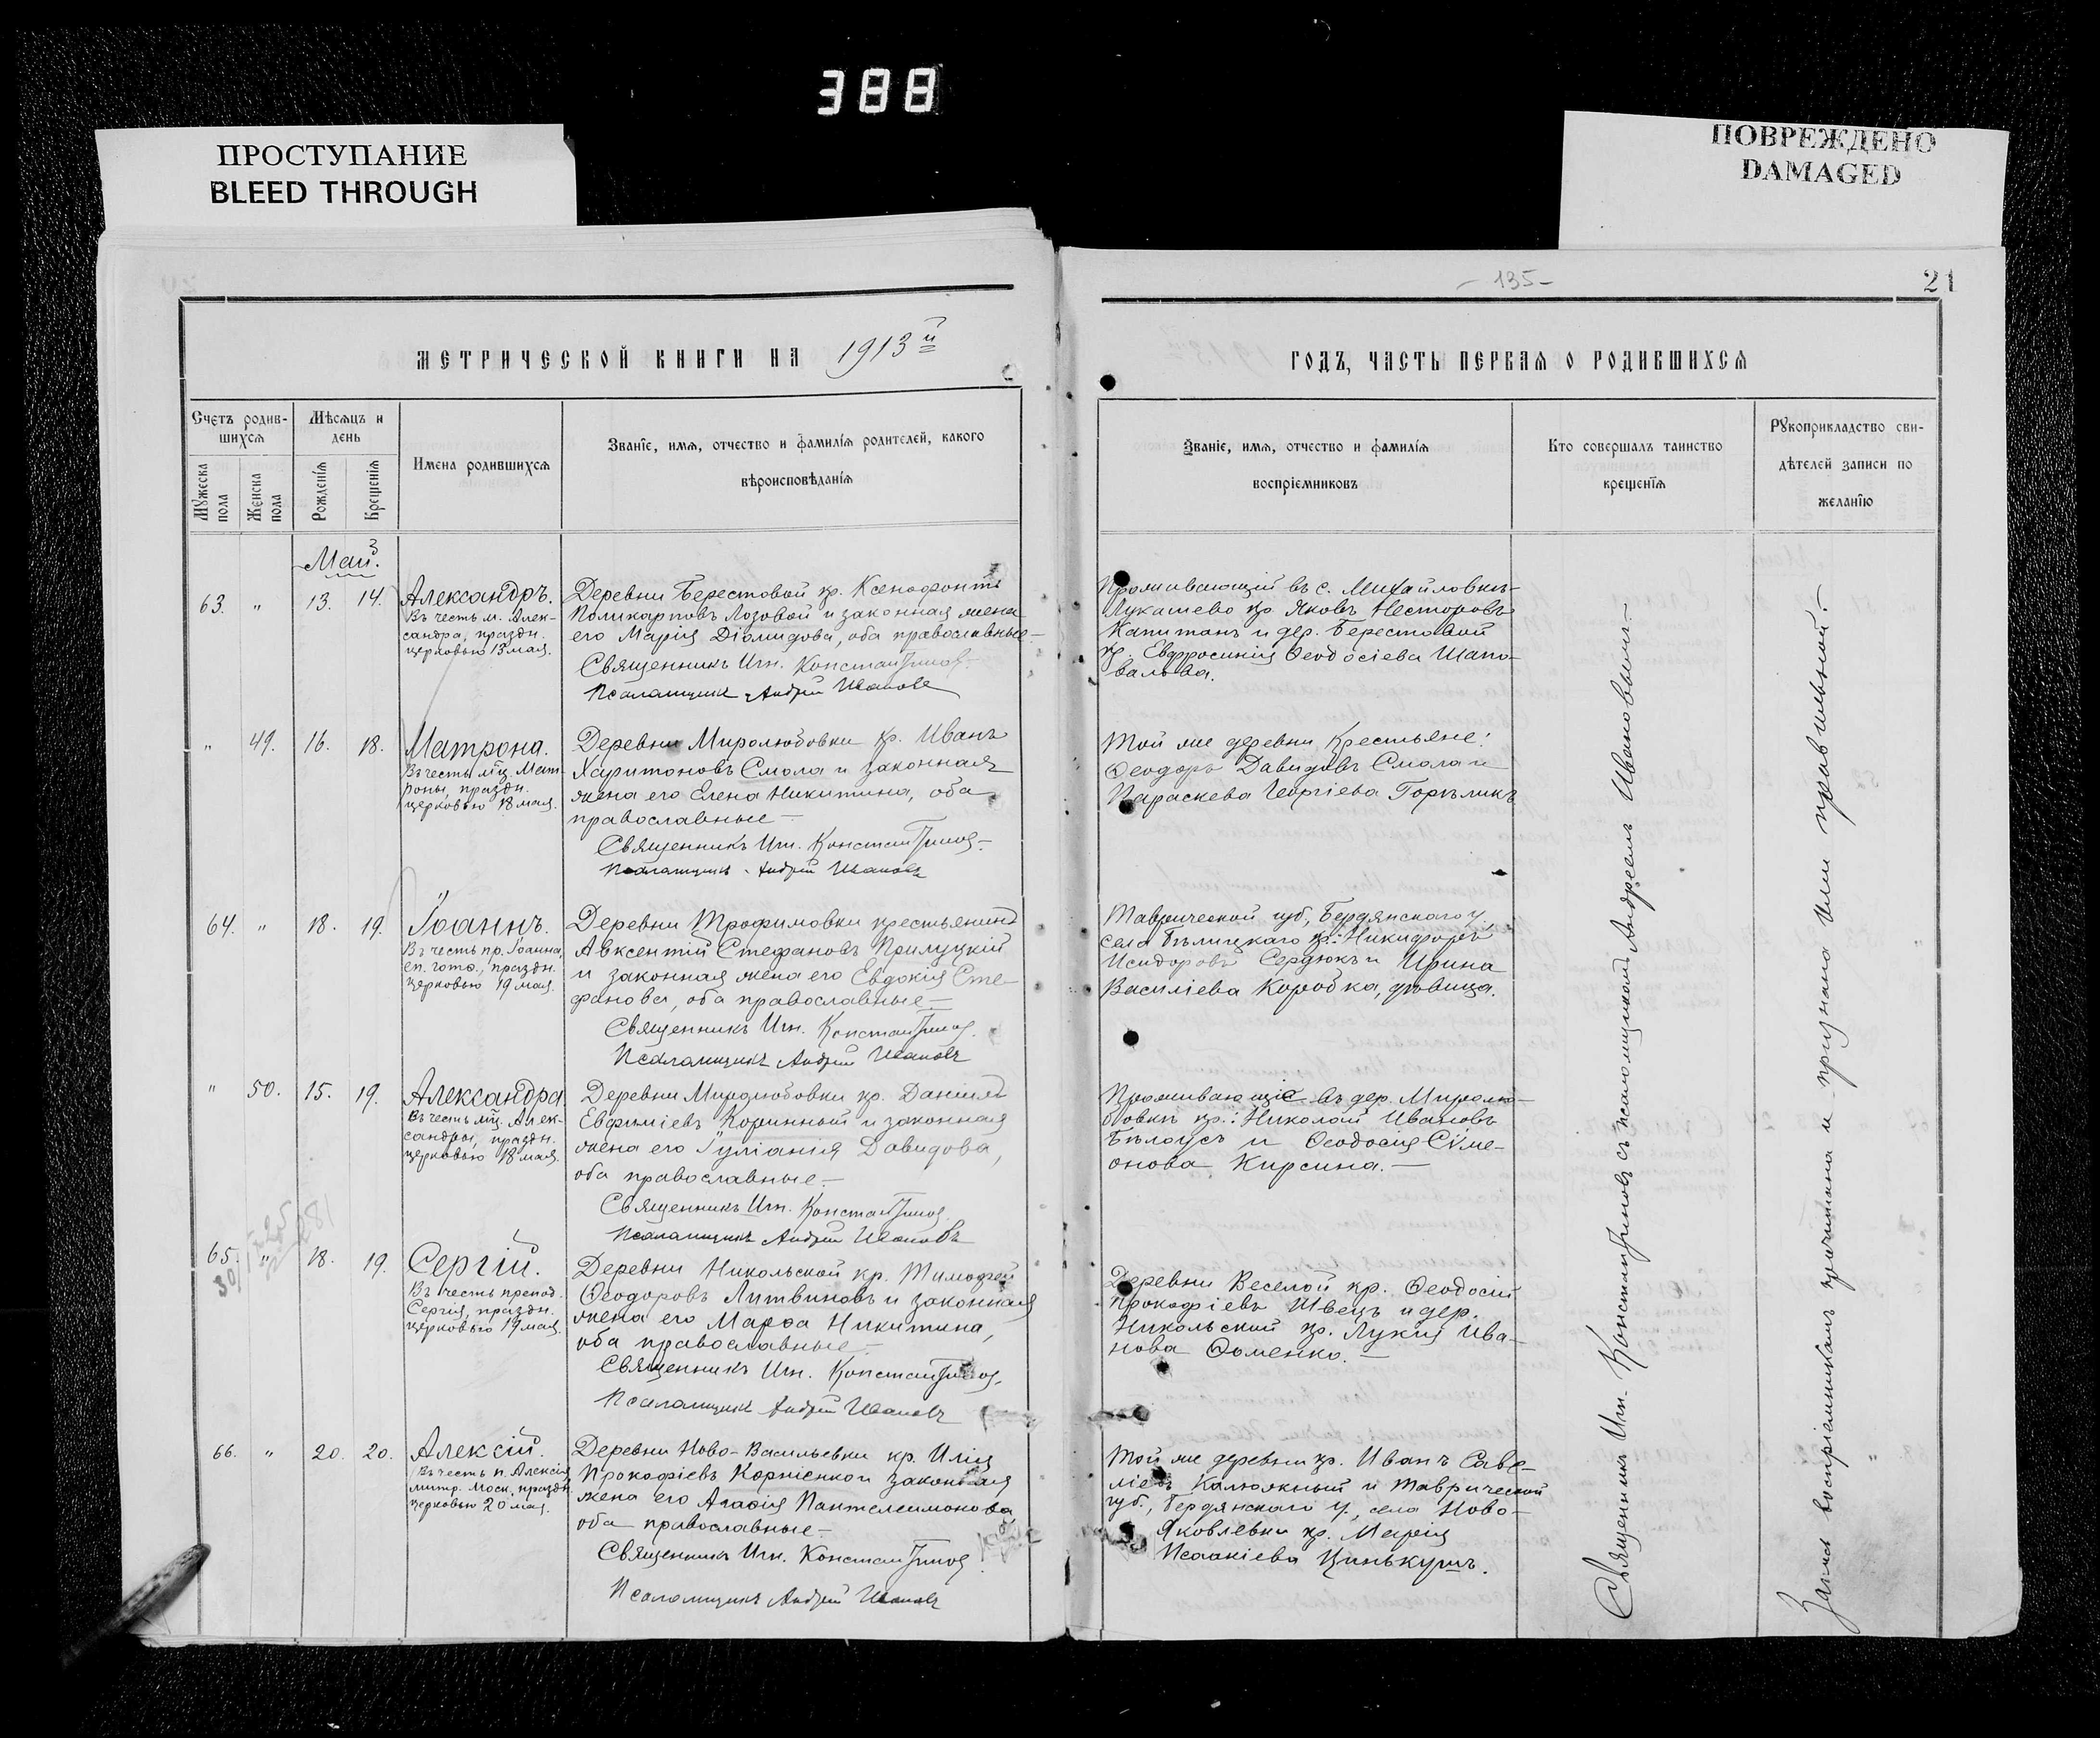 388
ПРОСТУПАНИЕ
BLEED THROUGH
ПОВРЕЖДЕНО
DAMAGED
МЕТРИЧЕСКОЙ КНИГИ НА 1913й
Счетъ родив-
шихся
Мѣсяцъ и
день
Имена родившихся
Званіе, имя, отчество и фамилія родителей, какого
вѣроисповѣданія
Мужеска
пола
Женска
пола
Рожденія
Крещенія
Май.
63. " 13. 14. Александръ.
Въ честь м. Алек-
сандра, праздн.
церковью 13 мая.
Деревни Берестовой кр. Ксенофонтъ
Поликарповъ Лозовой и законная жена
его Марія Діомидова, оба православные —
Священникъ Игн. Константинов
Псаломщикъ Андрей Ивановъ
" 49. 16. 18. Матрона.
Въ честь мц. Мат-
роны, праздн.
церковью 18 мая.
Деревни Миролюбовки кр. Иванъ
Харитоновъ Смола и законная
жена его Елена Никитина, оба
православные —
Священникъ Игн. Константинов
Псаломщикъ Андрей Ивановъ
64. " 18. 19. Іоаннъ.
Въ честь пр. Іоанна,
еп. готѳ., праздн.
церковью 19 мая.
Деревни Трофимовки крестьянинъ
Авксентій Стефановъ Прилуцкій
и законная жена его Евдокія Сте-
фанова, оба православные —
Священникъ Игн. Константинов
Псаломщикъ Андрей Ивановъ
" 50. 15. 19. Александра.
Въ честь мц. Алек-
сандры, праздн.
церковью 18 мая.
Деревни Миролюбовки кр. Даніилъ
Евфиміевъ Коринный и законная
жена его Іуліанія Давидова,
оба православные —
Священникъ Игн. Константинов
Псаломщикъ Андрей Ивановъ
65. " 18. 19. Сергій.
Въ честь препод.
Сергія, праздн.
церковью 19 мая.
Деревни Никольской кр. Тимофей
Ѳеодоровъ Литвиновъ и законная
жена его Марѳа Никитина,
оба православные —
Священникъ Игн. Константинов
Псаломщикъ Андрей Ивановъ
66. " 20. 20. Алексій.
Въ честь п. Алексія,
митр. Моск. праздн.
церковью 20 мая.
Деревни Ново-Васильевки кр. Илія
Прокофіевъ Корніенко и законная
жена его Агаѳія Пантелеимонова,
оба православные —
Священникъ Игн. Константинов
Псаломщикъ Андрей Ивановъ
- 135 -
21
ГОДЪ, ЧАСТЬ ПЕРВАЯ О РОДИВШИХСЯ
Званіе, имя, отчество и фамилія
воспріемниковъ
Кто совершалъ таинство
крещенія
Рукоприкладство сви-
дѣтелей записи по
желанію
Проживающій въ с. Михайловкѣ-
Лукашево кр. Яковъ Несторовъ
Капитанъ и дер. Берестовой
кр. Евфросинія Ѳеодосіева Шапо-
валова.
Той же деревни крестьяне:
Ѳеодоръ Давидовъ Смола и
Параскева Георгіева Горѣликъ
Таврической губ., Бердянскаго у.
села Бѣлицкаго кр.: Никифоръ
Исидоровъ Сердюкъ и Ирина
Василіева Коробка, дѣвица.
Проживающіе въ дер. Миролю-
бовкѣ кр.: Николай Ивановъ
Бѣлоусъ и Ѳеодосія Сѵме-
онова Кирсина. —
Деревни Веселой кр. Ѳеодосій
Прокофіевъ Швецъ и дер.
Никольской кр. Лукія Ива-
нова Ѳоменко. —
Той же деревни кр. Иванъ Саве-
ліевъ Калюжный и Таврической
губ., Бердянскаго у., села Ново-
Яковлевки кр. Марія
Исаакіева Цинькушъ.
Священникъ Игн. Константиновъ съ псаломщикомъ Андреемъ Ивановымъ. —
Запись воспріемникамъ прочитана и признана ими правильной. —